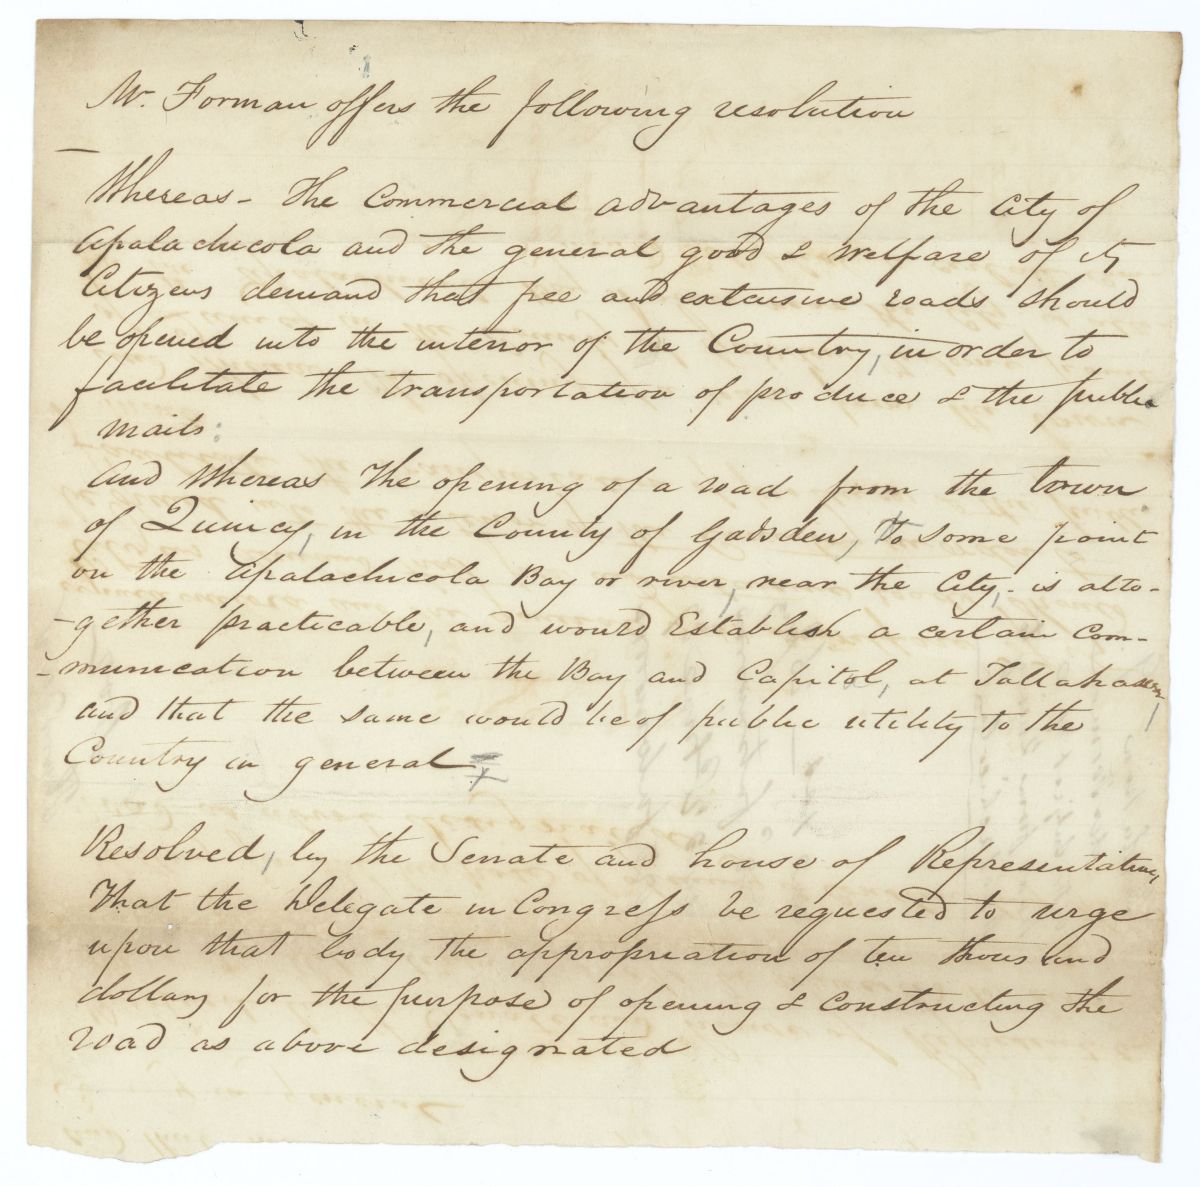 Mr. Forman offers the following resolution
Whereas - the Commercial advantages of the City of
Apalachicola and the general good & welfare of its
Citizens demand that free and extensive roads should
be opened into the interior of the Country, in order to
facilitate the transportation of produce & the public
mails:
And Whereas the opening of a road from the town
of Quincy, in the County of Gadsden, to some point
on the Apalachicola Bay or river, near the City, - is alto-
-gether practicable, and would Establish a certain Com-
-munication between the Bay and Capitol, at Tallahassee,
and that the same would be of public utility to the
Country in general
Resolved, by the Senate and house of Representatives,
That the Delegate in Congress be requested to urge
upon that body the appropriation of ten thousand
dollars for the purpose of opening & constructing the
road as above designated